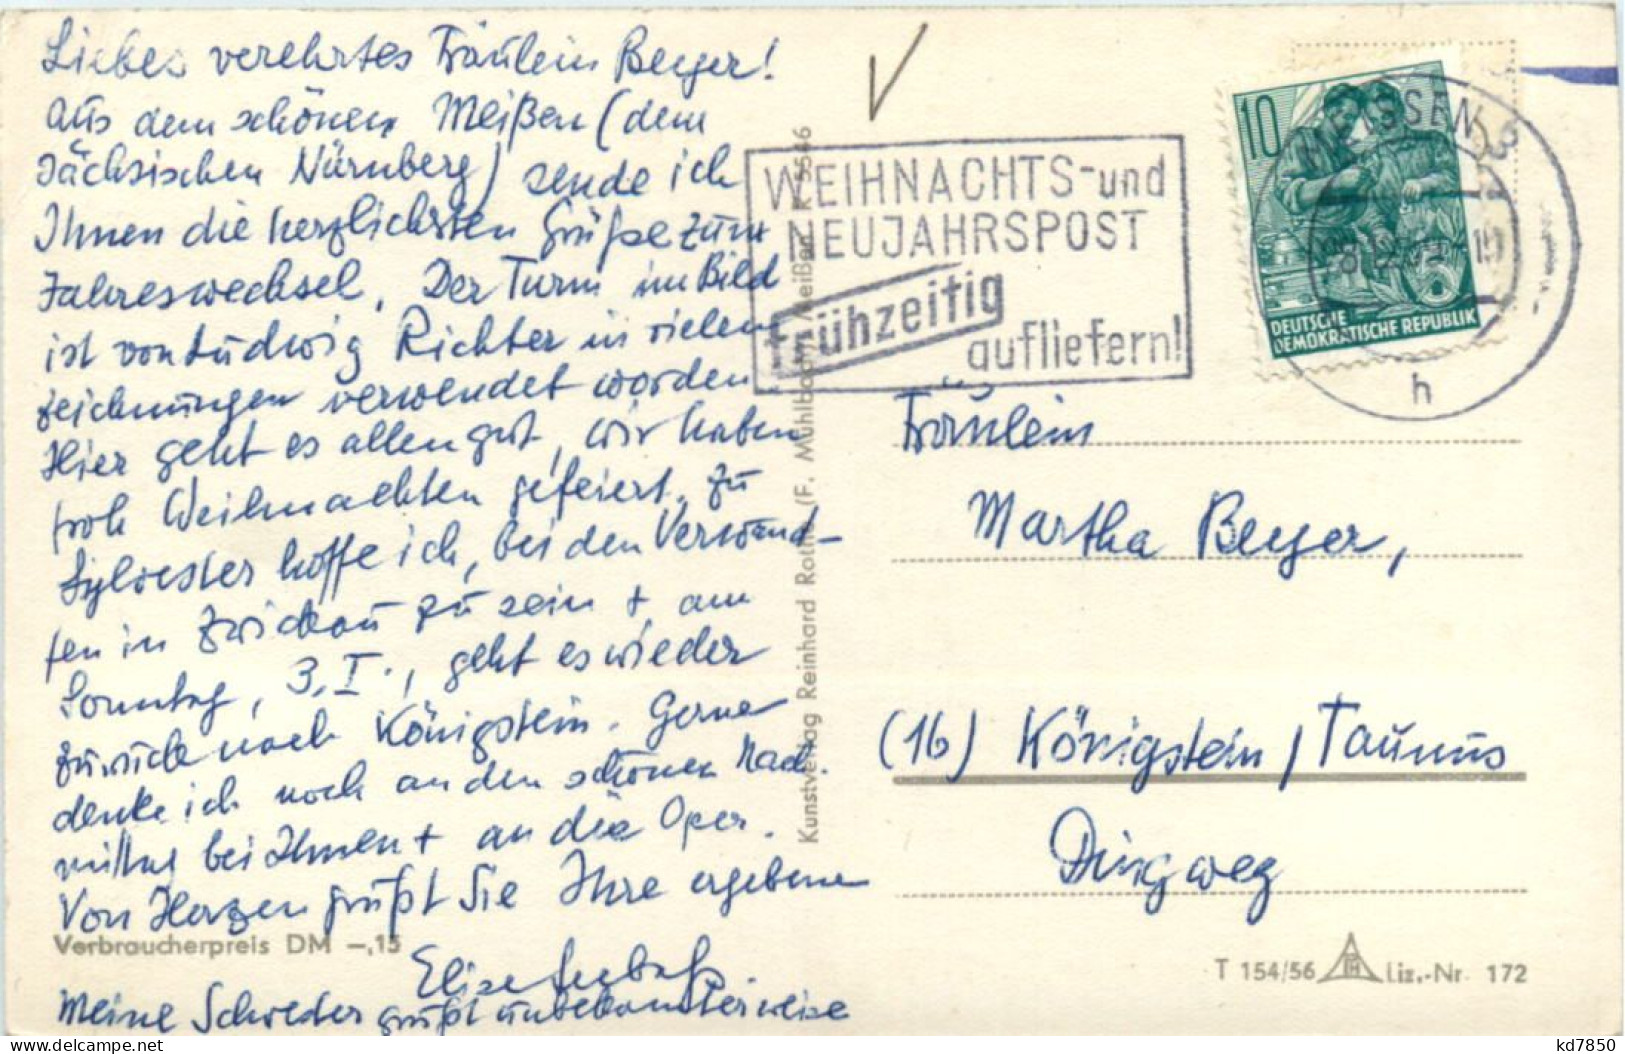 Liebes verehrtes Fräulein Beyer!
Aus dem schönen Meißen (dem
sächsischen Nürnberg) sende ich
Ihnen die herzlichsten Grüße zum
Jahreswechsel. Der Turm im Bild
ist von Ludwig Richter in vielen
Zeichnungen verwendet worden
Hier geht es allen gut, wir haben
froh Weihnachten gefeiert. Zu
Sylvester hoffe ich, bei den Verwand-
ten in Zwickau zu sein + am
Sonntag, 3. I., geht es wieder
zurück nach Königstein. Gerne
denke ich noch an den schönen Nach-
mittag bei Ihnen + an die Oper.
Von Herzen grüßt Sie Ihre ergebene
Elise
Meine Schwester grüßt unbekannterweise
Verbraucherpreis DM -,15
Kunstverlag Reinhard Rothe (F. Mühlbach), Meißen
WEIHNACHTS- und
NEUJAHRSPOST
frühzeitig
aufliefern!
10
DEUTSCHE
DEMOKRATISCHE REPUBLIK
h
Fräulein
Martha Beyer,
(16) Königstein / Taunus
Dingweg
T 154/56 Liz.-Nr. 172
www.delcampe.net
kd7850